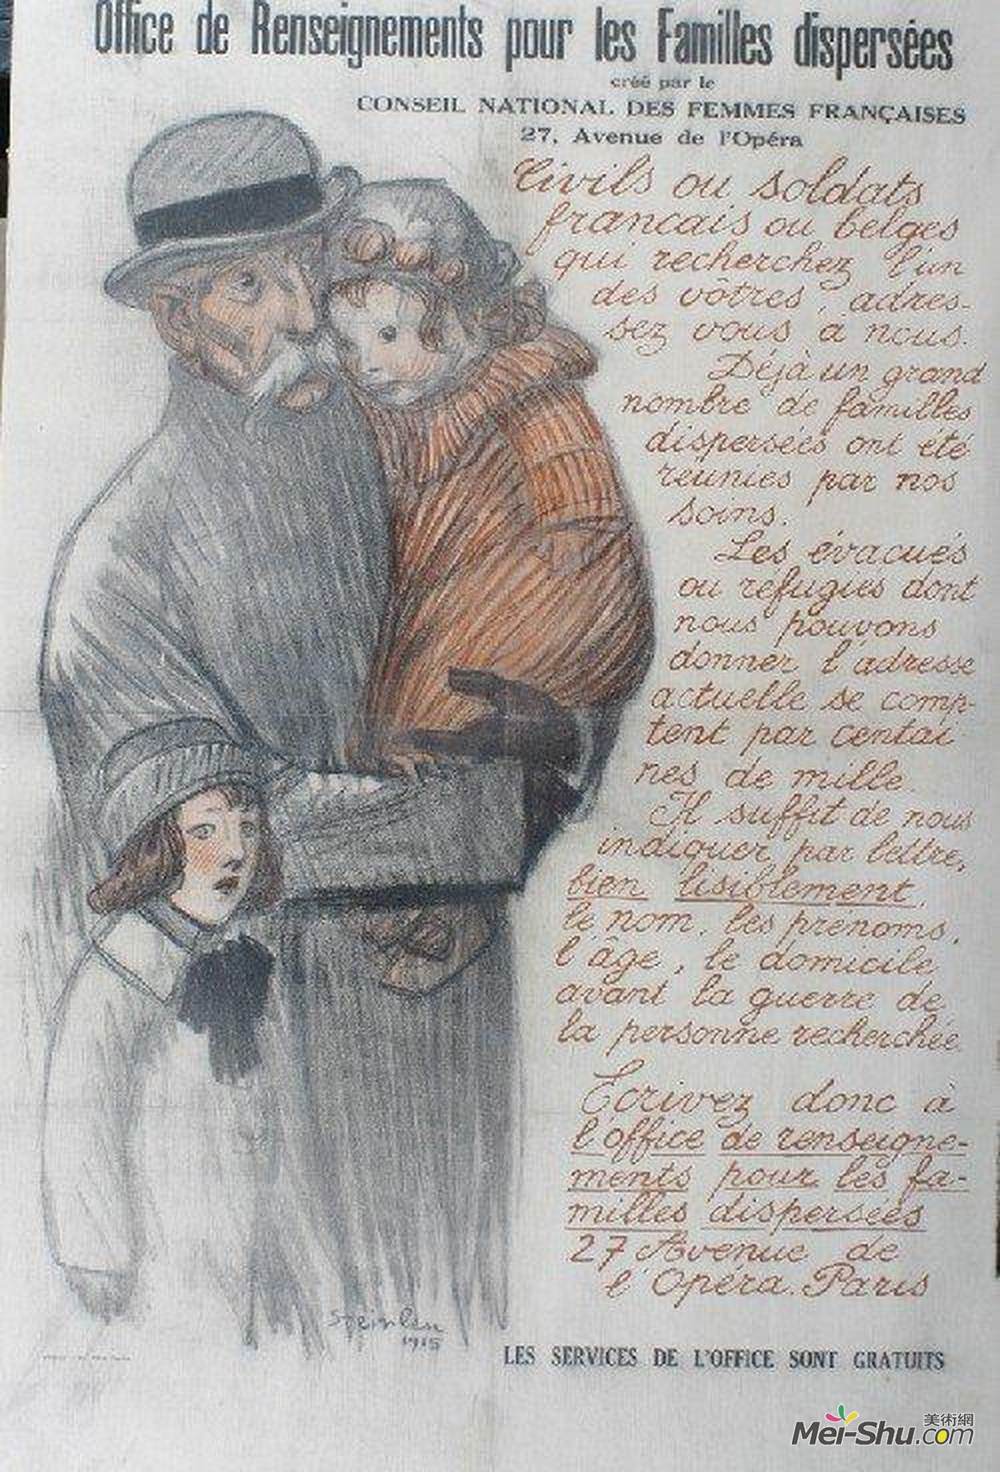 Office de Renseignements pour les Familles dispersées
créé par le
CONSEIL NATIONAL DES FEMMES FRANÇAISES
27, Avenue de l'Opéra
Civils ou soldats
français ou belges
qui recherchez l'un
des vôtres, adres-
sez vous à nous.
Déjà un grand
nombre de familles
dispersées ont été
réunies par nos
soins.
Les évacués
ou réfugiés dont
nous pouvons
donner l'adresse
actuelle se comp-
tent par centai
nes de mille.
Il suffit de nous
indiquer, par lettre,
bien lisiblement,
le nom, les prénoms,
l'âge, le domicile
avant la guerre de
la personne recherchée.
Ecrivez donc à
l'office de renseigne-
ments pour les fa-
milles dispersées
27 Avenue de
l'Opéra. Paris
Steinlen
1915
LES SERVICES DE L'OFFICE SONT GRATUITS
美術網
Mei-Shu.com